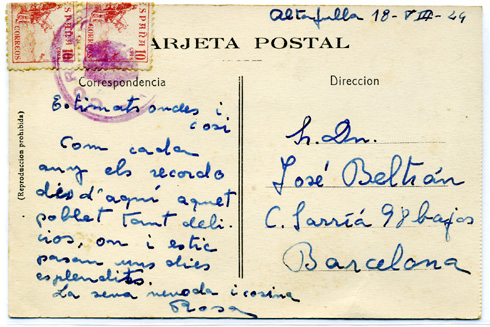 Altafulla 18-VIII-49
ESPAÑA ESPAÑA
CORREOS 10 CORREOS 10
TARJETA POSTAL
Correspondencia
Estimats oncles i
cosí
Com cada
any els recordo
des d'aquí aquet
poblet tant deli-
ciós, on i estic
pasan uns dies
esplendits.
La seva nevoda i cosina
Rosa
(Reproduccion prohibida)
Direccion
Sr. Dn.
José Beltrán
C. Sarriá 98 bajos
Barcelona